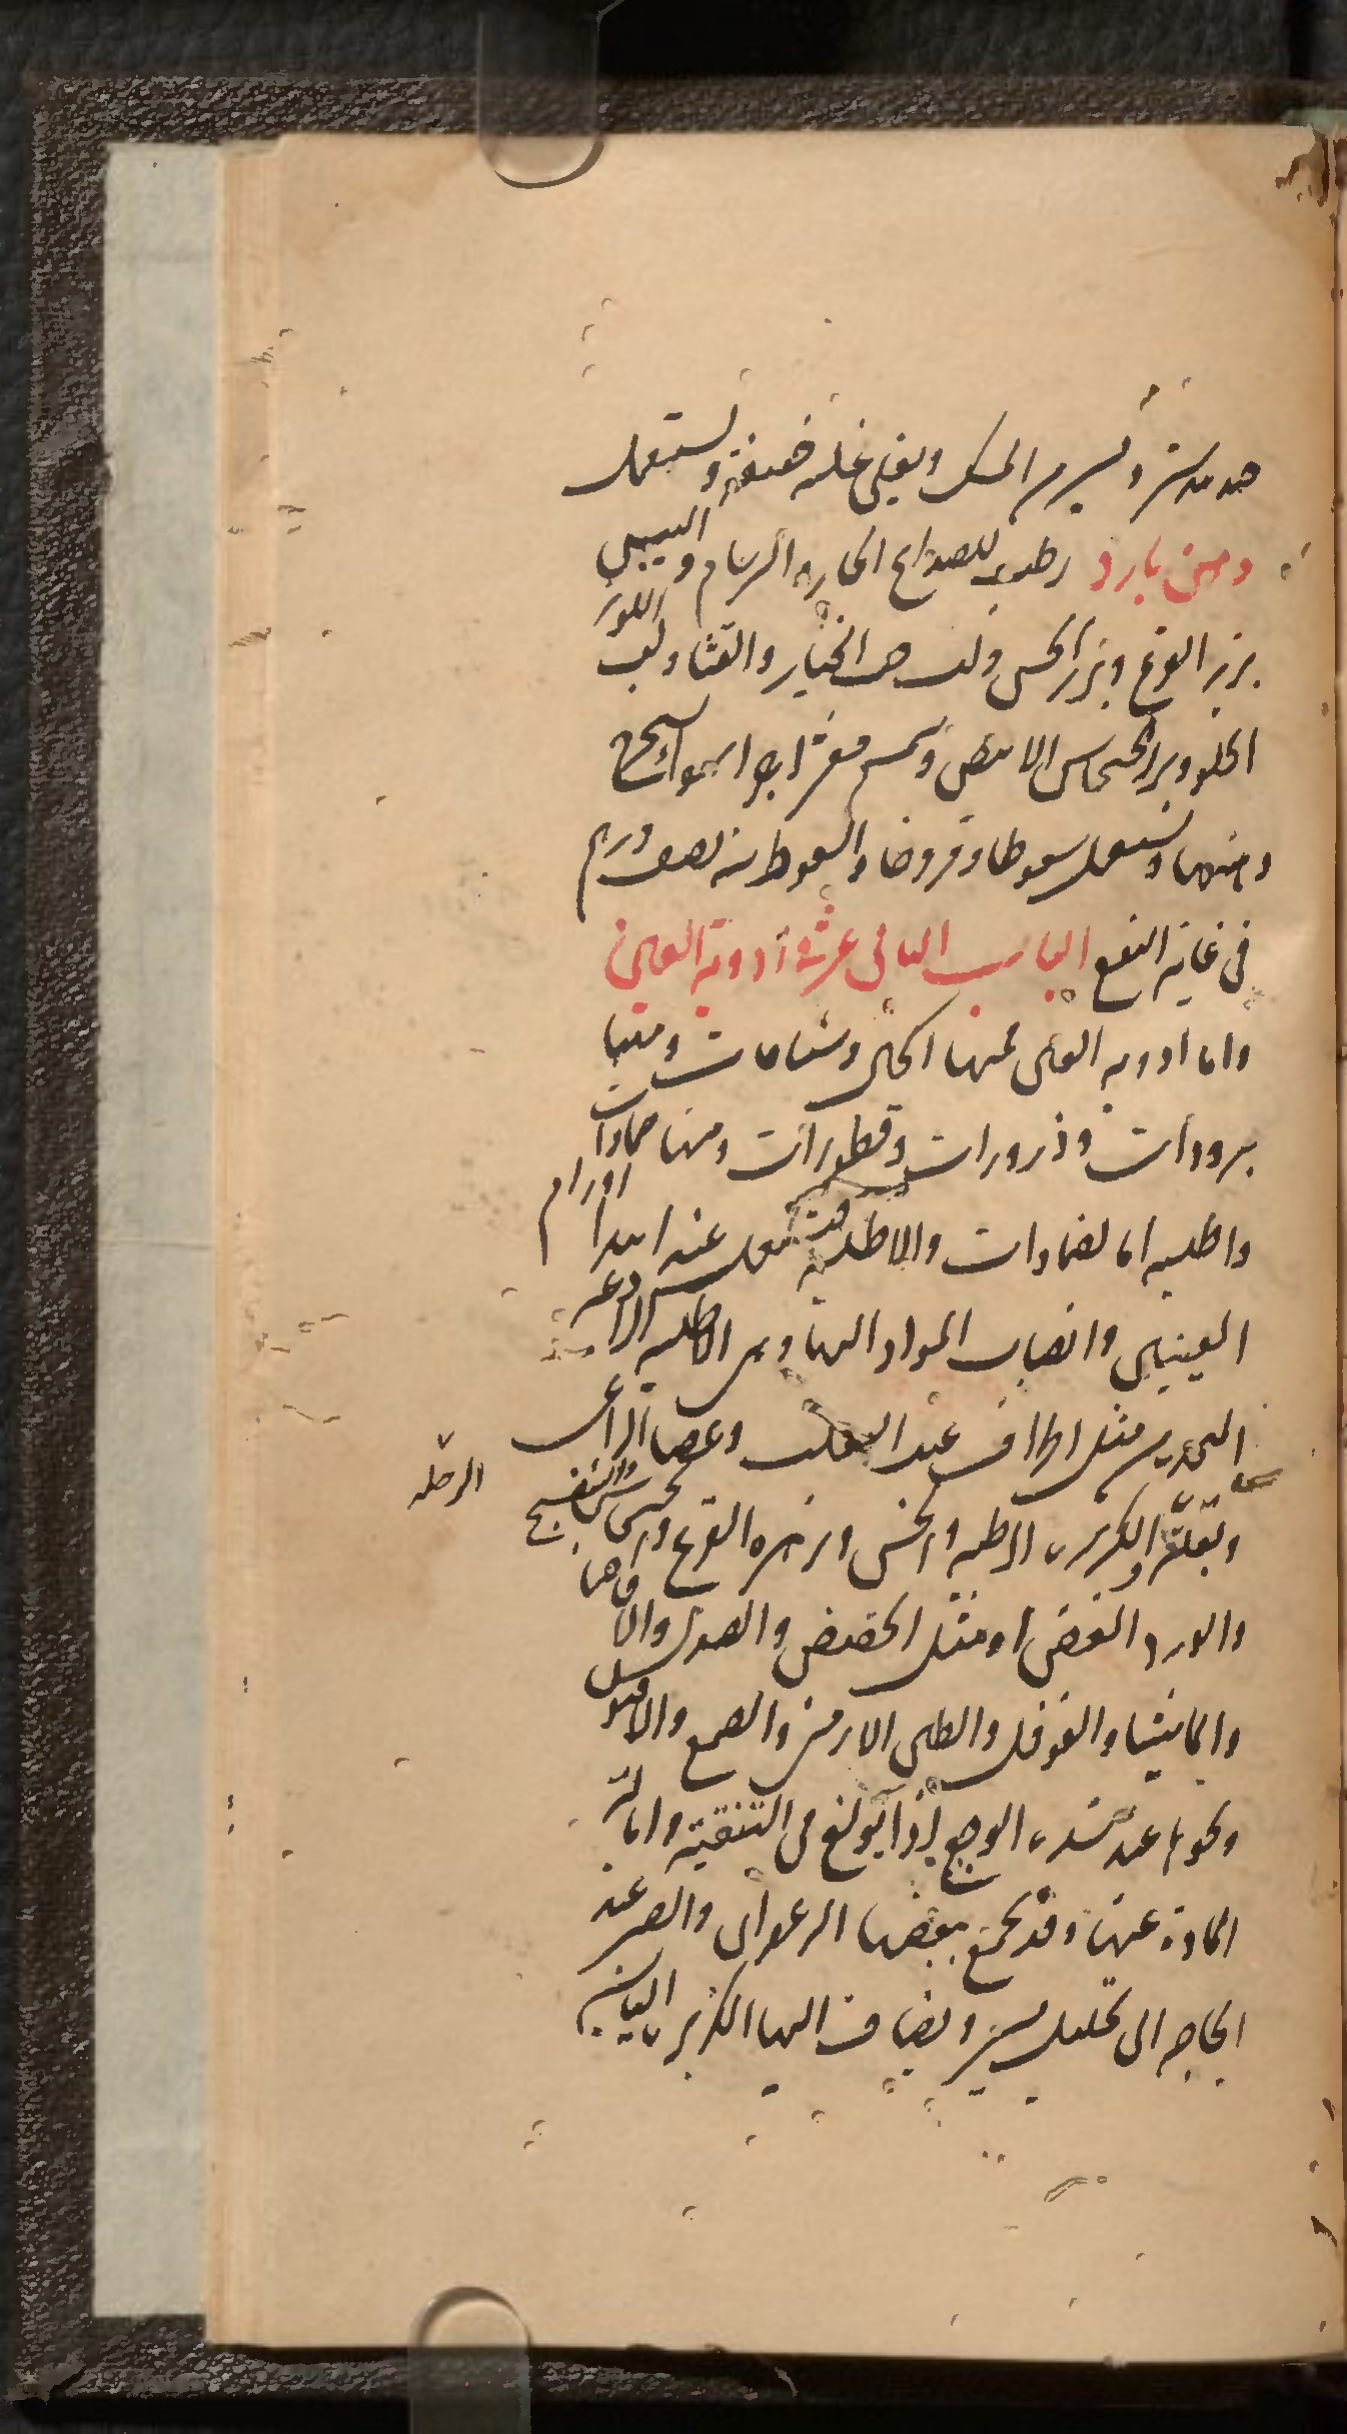 جندبيدستر ويسير من المسك ويغلى غلية خفيفة ويستعمل
دهن بارد رطب للصداع الحار والسرسام واليبس
بزر القرع وبزر الخس ولب حب الخيار والقثا ولب اللوز
الحلو وبزر الخشخاش الابيض وسمسم مقشر اجزا سوا يستخرج
دهنها ويستعمل سعوطا ومروخا والسعوط منه نصف درهم
فى غاية النفع الباب الثانى عشر فى ادوية العين
واما ادوية العين فمنها اكحال وشيافات ومنها
برودات وذرورات وقطورات ومنها ضمادات
واطلية اما الضمادات والاطلية فتستعمل عند ابتدا اورام
العينين وانصباب المواد اليها ومن الاطلية الرادعة
مثل اطراف عنب الثعلب وعصا الراعى
وبقلة والكزبرة الرطبة والخس وزهرة القرع والبنفسج
الرجلة
والورد الغض او مثل الحضض والصندل والاقاقيا
والماميثا والفوفل والطين الارمنى والصمغ والافيون
ونحوها عند شدة الوجع اذا بولغ فى التنقية وامالة
المادة عنها وقد يجمع ببعضها الزعفران والصبر عند
الحاجة الى تحليل يسير ويضاف اليها الكزبرة اليابسة